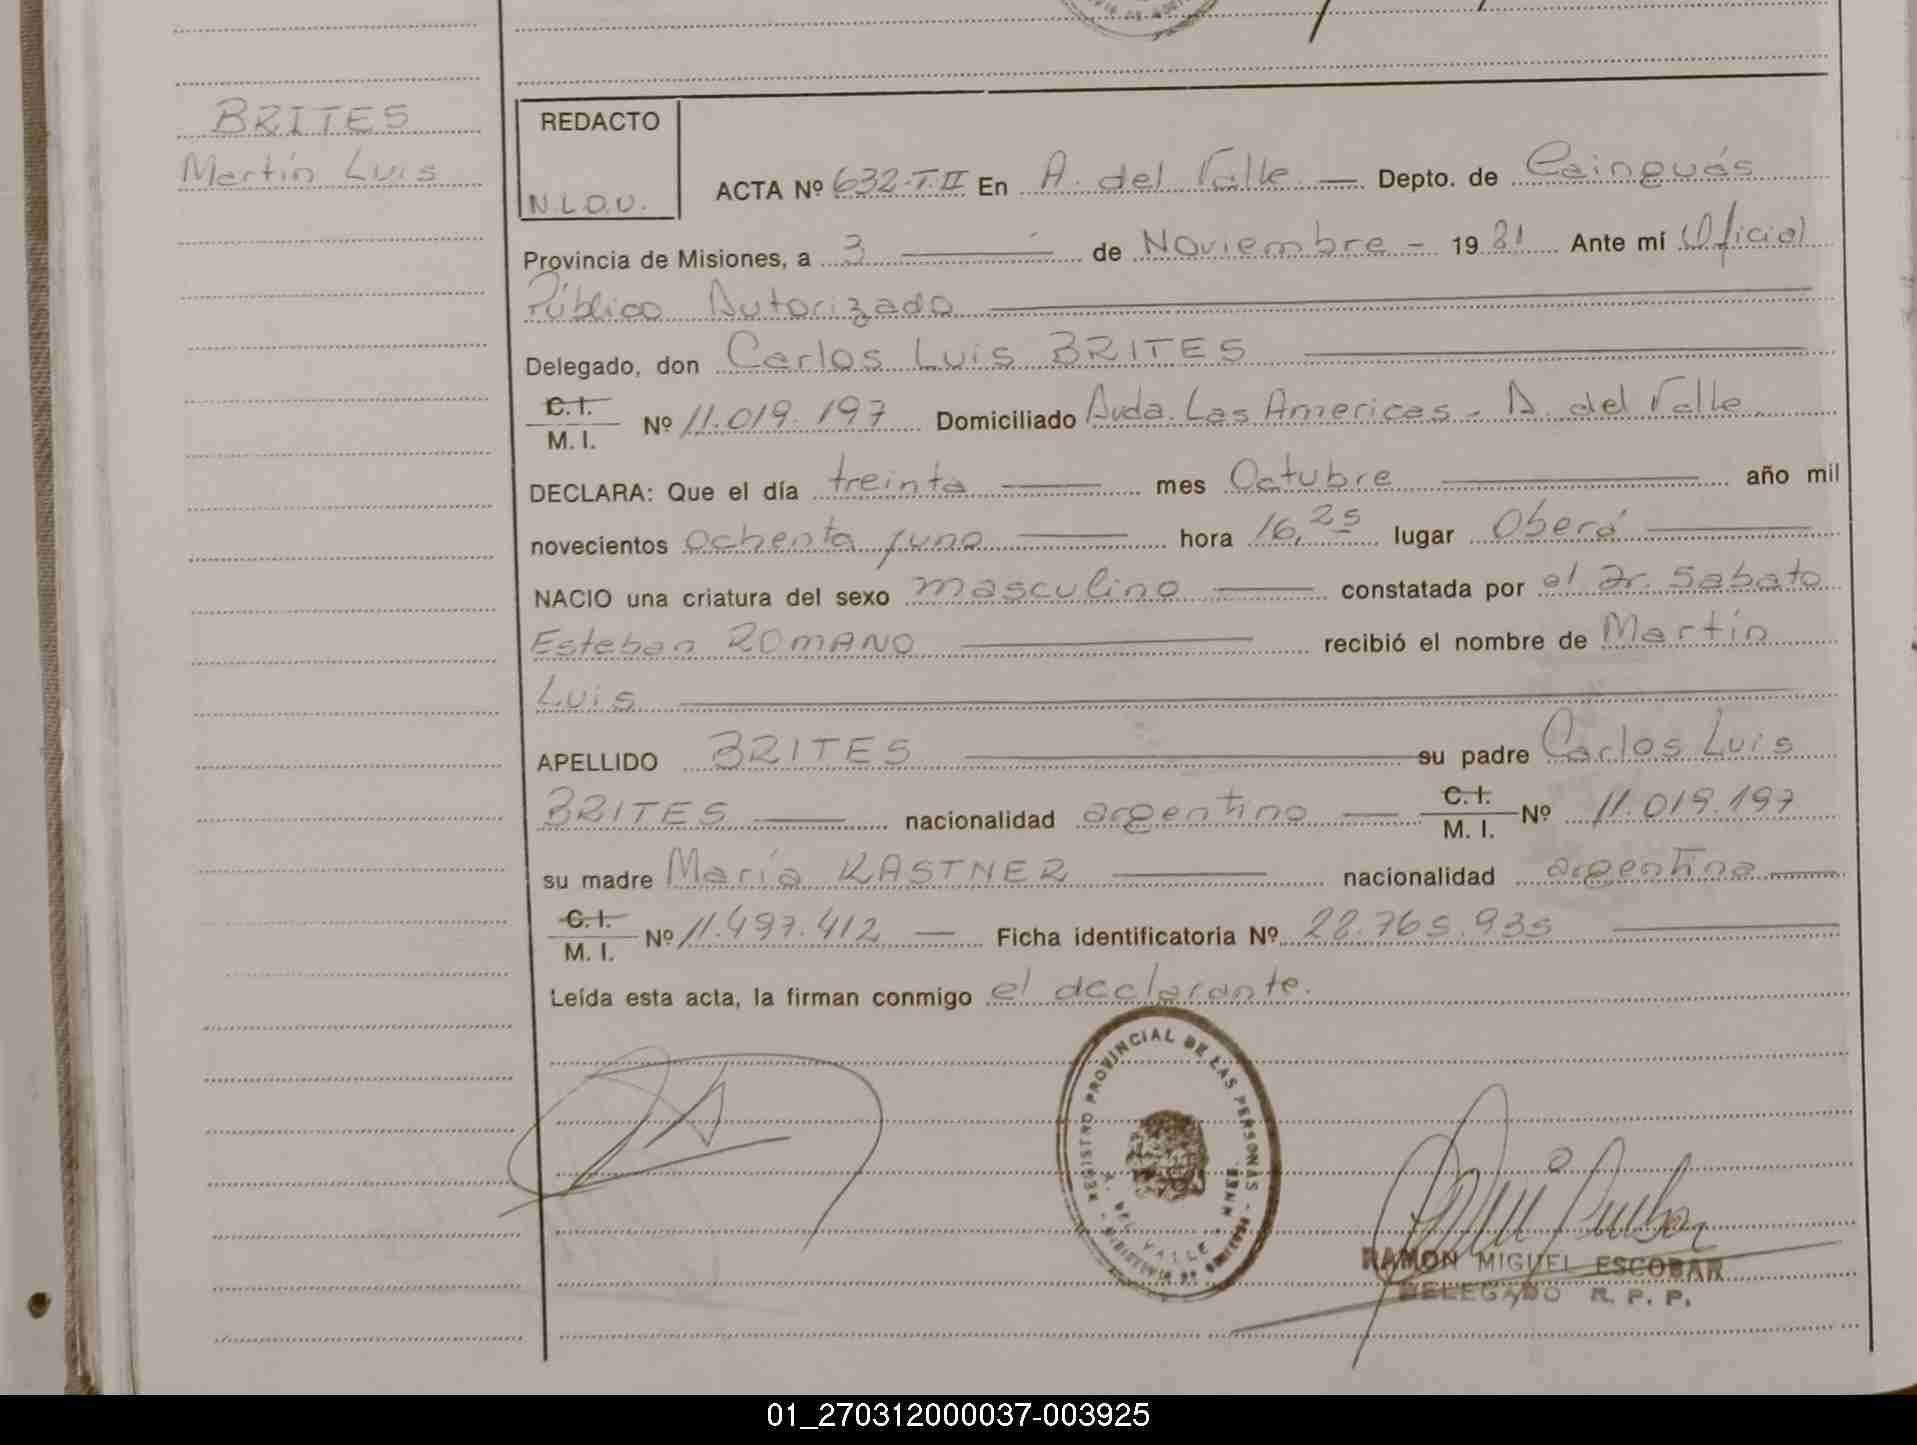 BRITES
Martín Luis
REDACTO
N.L.O.U.
ACTA Nº 632-T.II En A. del Valle — Depto. de Cainguás
Provincia de Misiones, a 3 — de Noviembre - 1981 Ante mí Oficial
Público Autorizado —
Delegado, don Carlos Luis BRITES —
C.I. / M.I. Nº 11.019.197 Domiciliado Avda. Las Americas - A. del Valle
DECLARA: Que el día treinta — mes Octubre — año mil
novecientos ochenta y uno — hora 16,25 lugar Oberá —
NACIO una criatura del sexo masculino — constatada por el Dr. Sabato
Esteban ROMANO — recibió el nombre de Martín
Luis —
APELLIDO BRITES — su padre Carlos Luis
BRITES — nacionalidad argentino — C.I. / M.I. Nº 11.019.197
su madre María KASTNER — nacionalidad argentina —
C.I. / M.I. Nº 11.497.412 — Ficha identificatoria Nº 28.765.935 —
Leída esta acta, la firman conmigo el declarante.
REGISTRO PROVINCIAL DE LAS PERSONAS
A. DEL VALLE
RAMON MIGUEL ESCOBAR
DELEGADO R. P. P.
01_270312000037-003925